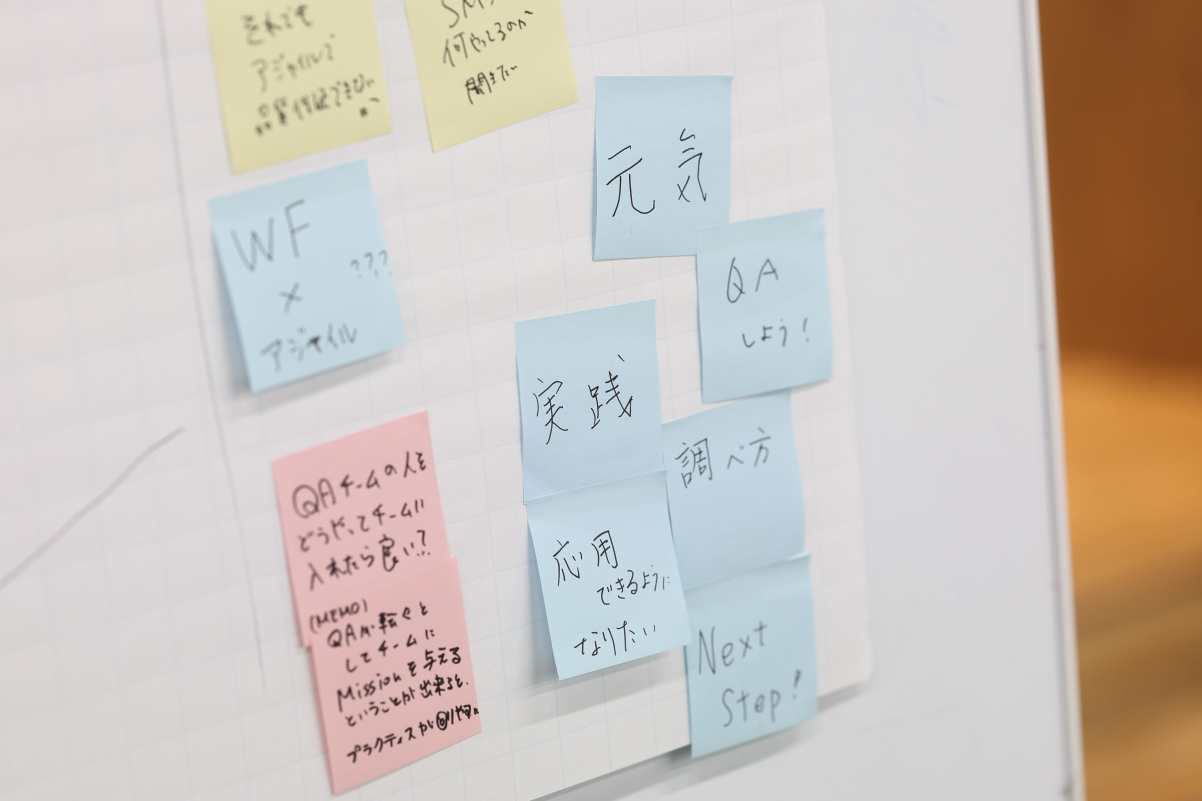 それでも
アジャイルで
品質保証できない
か
SM
何やってるのか
聞きたい
WF
×
アジャイル
???
元気
QA
しよう!
実践
調べ方
応用
できるように
なりたい
Next
Step!
QAチームの人を
どうやってチームに
入れたら良い?
(MEMO)
QAが転ぐと
してチームに
Missionを与える
ということが出来ると、
プラクティスが